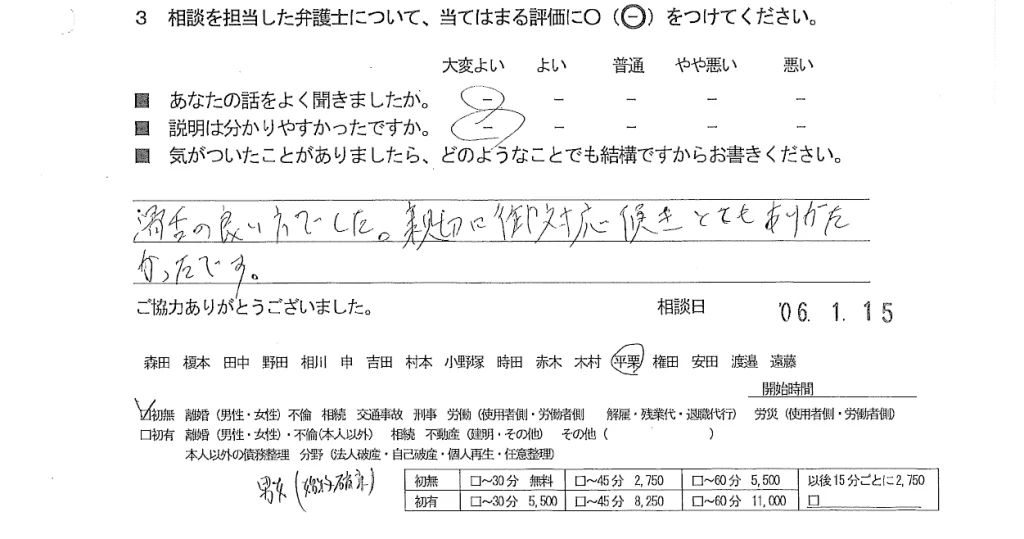 3 相談を担当した弁護士について、当てはまる評価に○(㊀)をつけてください。
大変よい よい 普通 やや悪い 悪い
■ あなたの話をよく聞きましたか。 － － － － －
■ 説明は分かりやすかったですか。 － － － － －
■ 気がついたことがありましたら、どのようなことでも結構ですからお書きください。
滑舌の良い方でした。親切に御対応頂きとてもありがた
かったです。
ご協力ありがとうございました。 相談日 '06. 1. 15
森田 榎本 田中 野田 相川 申 吉田 村本 小野塚 時田 赤木 木村 平栗 権田 安田 渡邉 遠藤
開始時間
☑初無 離婚（男性・女性）不倫 相続 交通事故 刑事 労働（使用者側・労働者側 解雇・残業代・退職代行） 労災（使用者側・労働者側）
□初有 離婚（男性・女性）・不倫(本人以外) 相続 不動産（建明・その他） その他（ ）
本人以外の債務整理 分野（法人破産・自己破産・個人再生・任意整理）
男女
初無 □～30分 無料 □～45分 2,750 □～60分 5,500 以後15分ごとに2,750
初有 □～30分 5,500 □～45分 8,250 □～60分 11,000 □